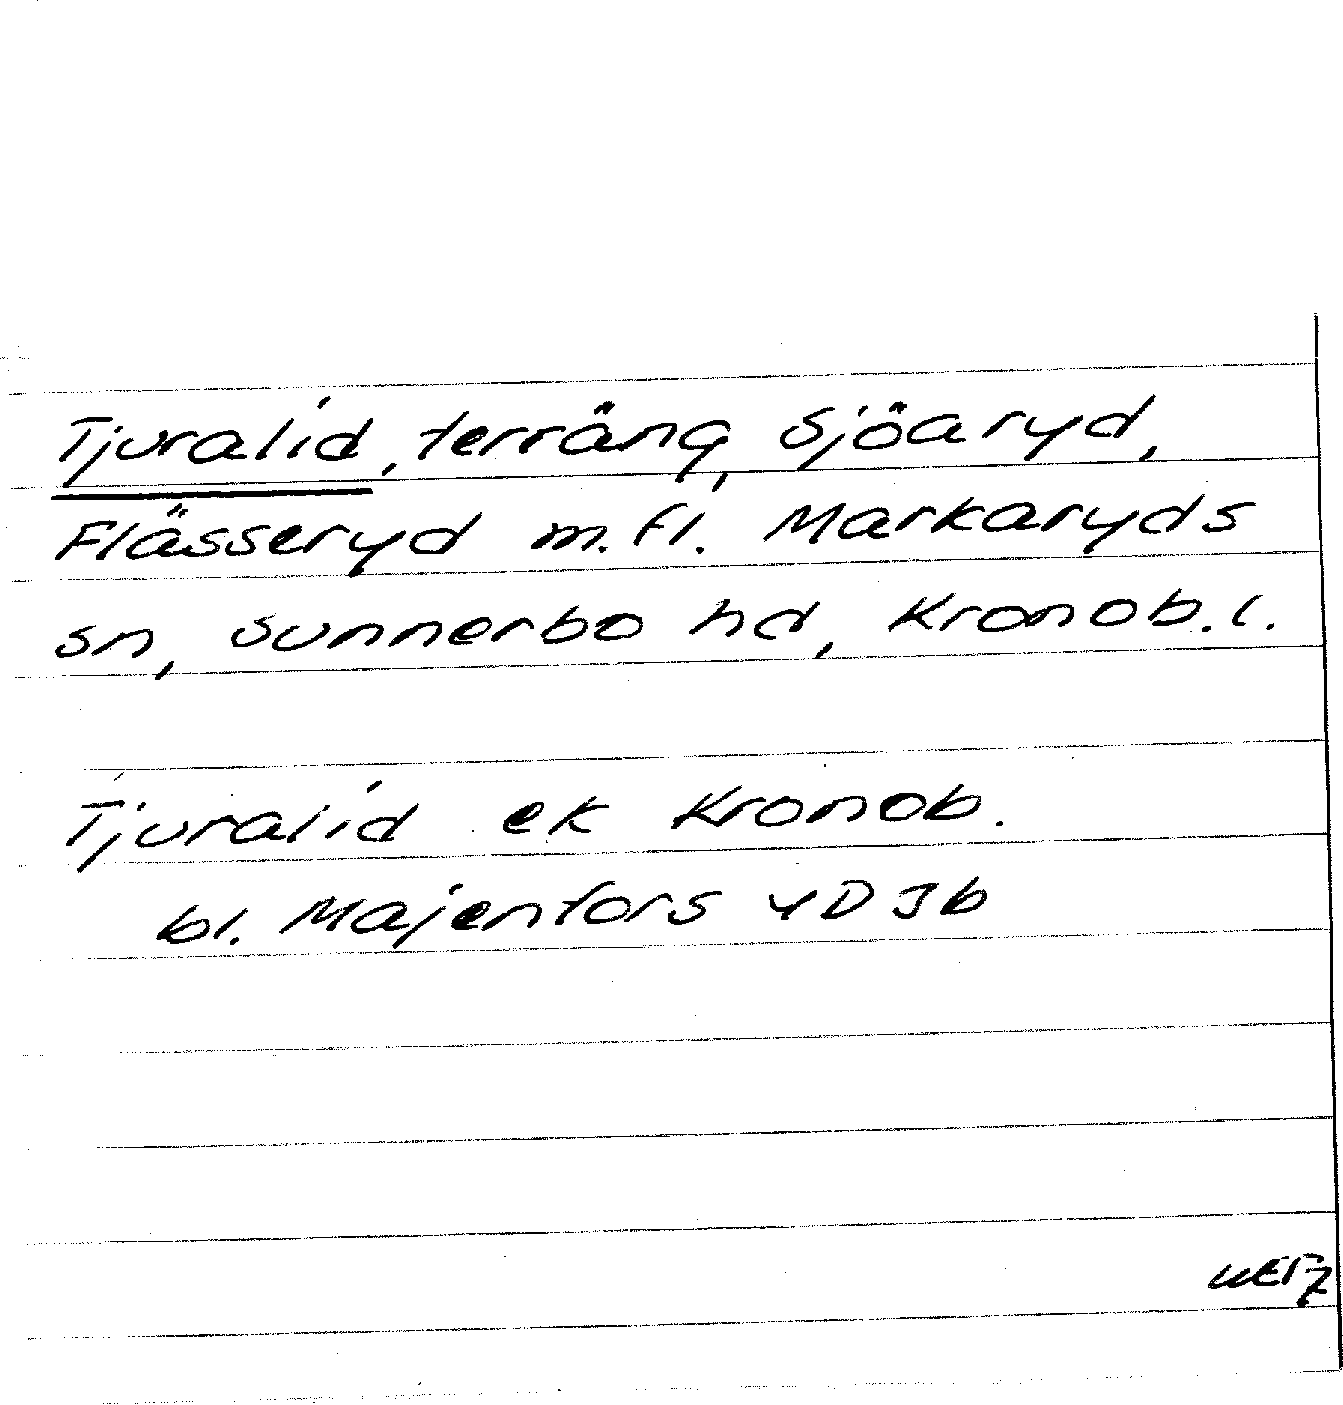 Tjuralid, terräng, Sjöaryd,
Flässeryd m.fl. Markaryds
sn, Sunnerbo hd, Kronob.l.
Tjuralid ek Kronob.
bl. Majenfors 4D3b